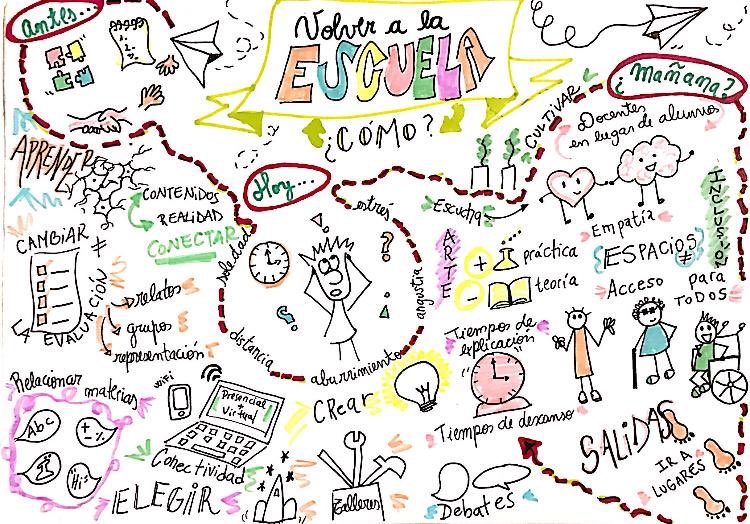 Antes...
Volver a la
ESCUELA
¿CÓMO?
¿Mañana?
CULTIVAR
Docentes
en lugar de alumnos
APRENDER
CONTENIDOS
REALIDAD
CONECTAR
Hoy...
soledad
estrés
angustia
aburrimiento
distancia
Escucha
Empatía
INCLUSIÓN
ARTE
+ práctica
- teoría
ESPACIOS
≠
Acceso para
TODOS
CAMBIAR
≠
EVALUACIÓN
relatos
grupos
representación
Relacionar materias
Abc
+ - %
Hi!
WiFi
Presencial
+
Virtual
Conectividad
ELEGIR
CREar
Talleres
Debates
Tiempos de
explicación
Tiempos de descanso
SALIDAS
IR A
LUGARES